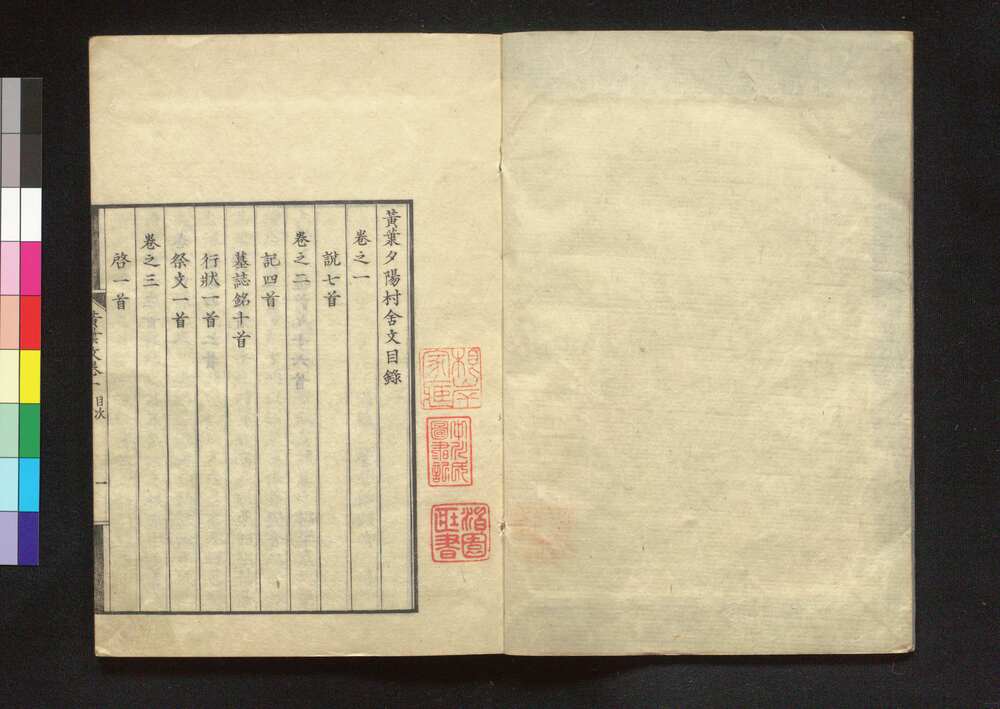 黃葉夕陽村舍文目錄
卷之一
說七首
卷之二
記四首
墓誌銘十首
行狀一首
祭文一首
卷之三
啓一首
目次
一